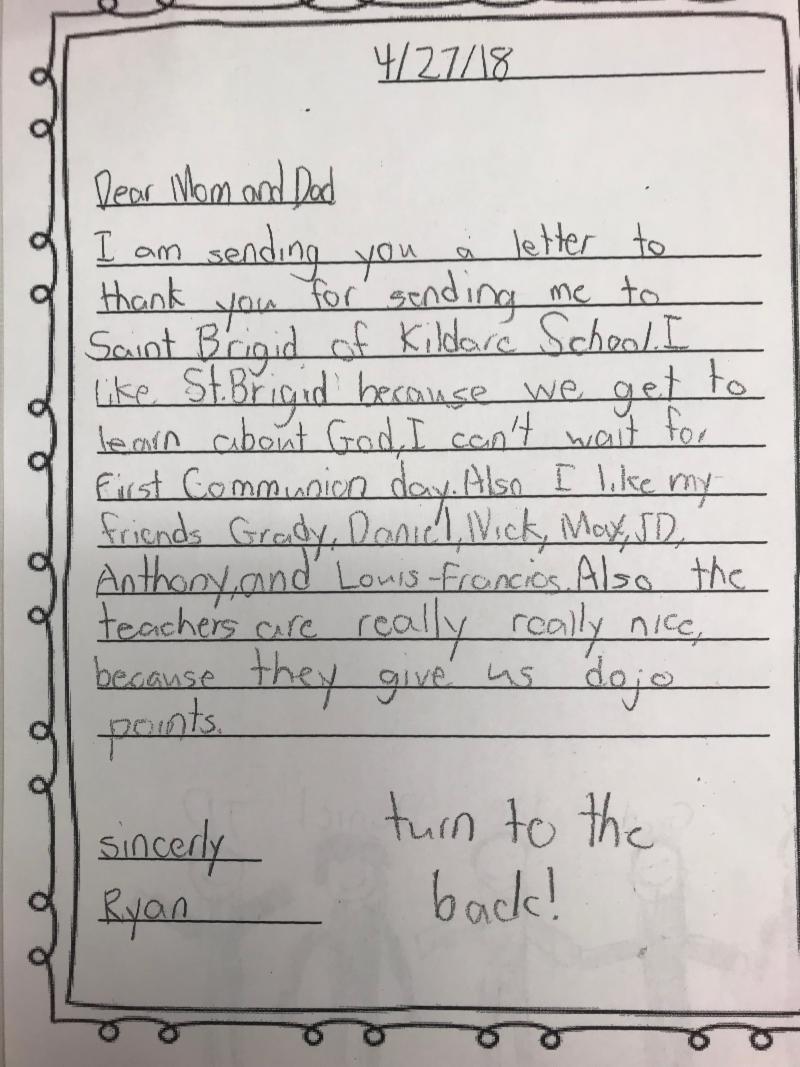 4/27/18
Dear Mom and Dad
I am sending you a letter to
thank you for sending me to
Saint Brigid of Kildare School. I
like St. Brigid because we get to
learn about God, I can't wait for
First Communion day. Also I like my
friends Grady, Daniel, Nick, Max, JD,
Anthony, and Louis-Francios. Also the
teachers are really really nice,
because they give us dojo
points.
sincerly
Ryan
turn to the
back!